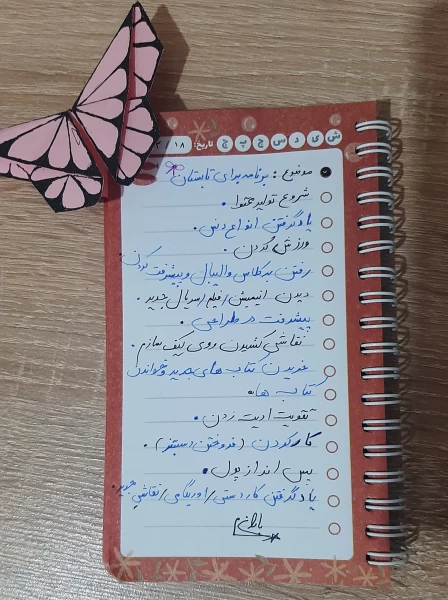 ش ی د س چ پ ج تاریخ: ۱۸ / ۳
موضوع : برنامه برای تابستان
شروع تولید محتوا .
یادگرفتن انواع دنس .
ورزش کردن .
رفتن به کلاس والیبال و پیشرفت کردن .
دیدن انیمیشن/فیلم/سریال جدید .
پیشرفت در طراحی .
نقاشی کشیدن روی کیف سازم .
خریدن کتاب های جدید و خواندن
کتاب ها .
تقویت ادیت زدن .
کار کردن (فروختن دستبند) .
پس انداز پول .
یادگرفتن کاردستی/اوریگامی/نقاشی جدید .